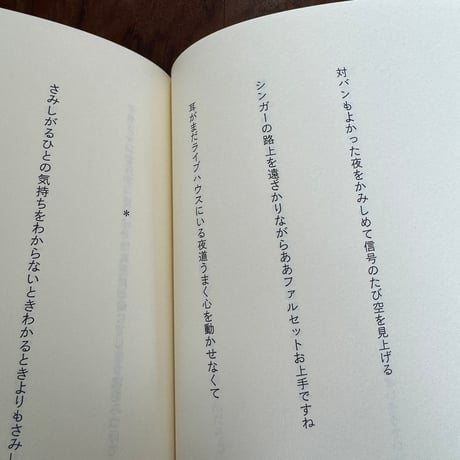 対バンもよかった夜をかみしめて信号のたび空を見上げる
シンガーの路上を遠ざかりながらああファルセットお上手ですね
耳がまだライブハウスにいる夜道うまく心を動かせなくて
*
さみしがるひとの気持ちをわからないときわかるときよりもさみし